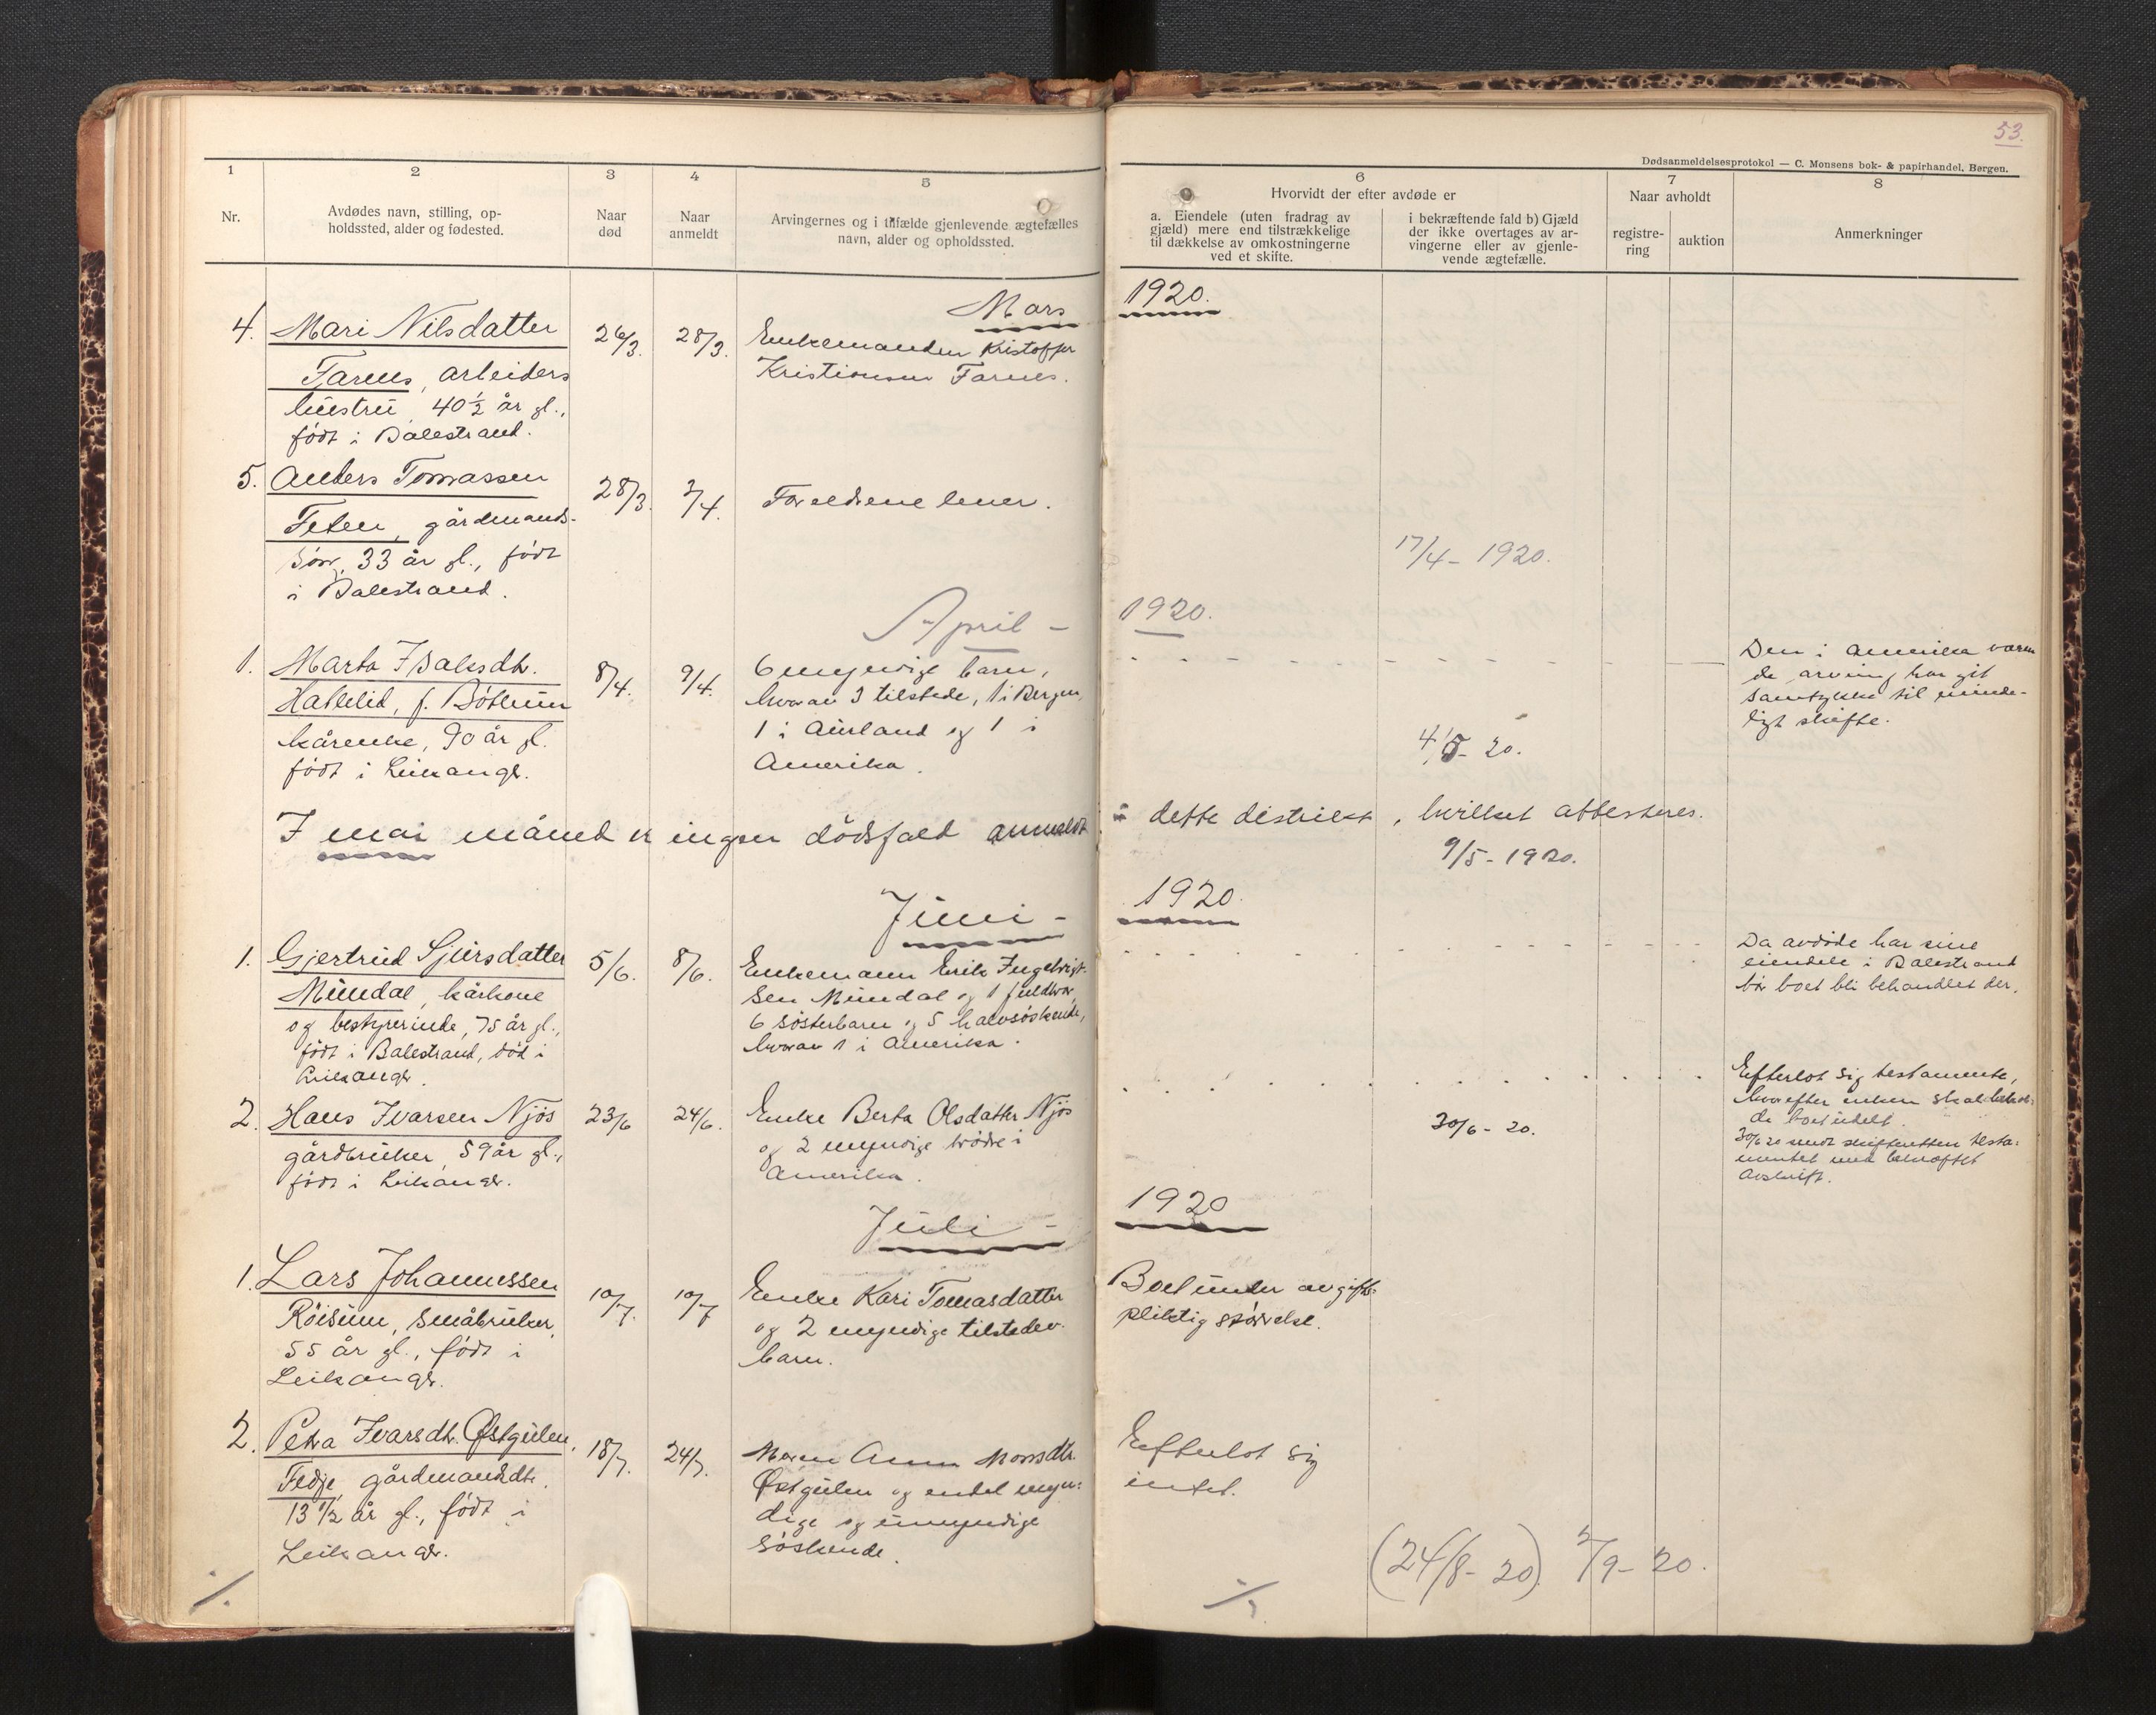 53.
Dødsanmeldelsesprotokol — C. Monsens bok- & papirhandel, Bergen.
1
2
3
4
5
6
7
8
Nr.
Avdødes navn, stilling, op-
holdssted, alder og fødested.
Naar
død
Naar
anmeldt
Arvingernes og i tilfælde gjenlevende ægtefælles
navn, alder og opholdssted.
Hvorvidt der efter avdøde er
a. Eiendele (uten fradrag av
gjæld) mere end tilstrækkelige
til dækkelse av omkostningerne
ved et skifte.
i bekræftende fald b) Gjæld
der ikke overtages av ar-
vingerne eller av gjenle-
vende ægtefælle.
Naar avholdt
registre-
ring
auktion
Anmerkninger
Mars 1920.
4. Mari Nilsdatter
Farnes, arbeiders
hustru 40½ år gl.,
født i Balestrand.
26/3.
28/3.
Enkemanden Kristoffer
Kristiansen Farnes.
5. Anders Tomassen
Feten, gårdmands-
søn, 33 år gl., født
i Balestrand.
28/3.
2/4.
Forældrene lever.
17/4 - 1920.
April - 1920.
1. Marta Isaksdtr.
Hatlelid, f. Bøthun
kårenke, 90 år gl.
født i Leikanger.
8/4.
9/4.
6 myndige barn,
hvorav 3 tilstede, 1 i Bergen,
1 i Aurland og 1 i
Amerika.
4/5 - 20.
Den i Amerika væren
de arving har git
samtykke til minde-
ligt skifte.
I mai måned er ingen dødsfald anmeldt i dette distrikt, hvilket attesteres.
9/5 - 1920.
Juni - 1920.
1. Gjertrud Sjursdatter
Mundal, kårkone
og bestyrerinde, 75 år gl.,
født i Balestrand, død i
Leikanger.
5/6.
8/6.
Enkemann Erik Ingebrigt-
sen Mundal og 1 fuldbror,
6 søsterbarn og 5 halvsøskende,
hvorav 1 i Amerika.
Da avdøde har sine
eiendele i Balestrand
bør boet bli behandlet der.
2. Hans Ivarsen Njøs
gårdbruker, 59 år gl.,
født i Leikanger.
23/6
24/6.
Enke Berta Olsdatter Njøs
og 2 myndige brødre i
Amerika.
30/6 - 20.
Efterlot sig testamente,
hvorefter enken skal behol-
de boet udelt.
30/6 20 sendt skifteretten testa-
mentet med bekræftet
avskrift.
Juli - 1920
1. Lars Johannessen
Röisum, småbruker,
55 år gl., født i
Leikanger.
10/7.
10/7
Enke Kari Tomasdatter
og 2 myndige tilstedev.
barn.
Boet under avgifts-
pliktig størrelse.
2. Petra Ivarsdtr. Østgulen,
Fedje, gårdmandsdtr.
13 1/2 år gl., født i
Leikanger.
18/7.
24/7.
Moren Anna Monsdtr.
Østgulen og endel myn-
dige og umyndige
søskende.
Efterlot sig
intet.
(24/8 - 20). 2/9 - 20.